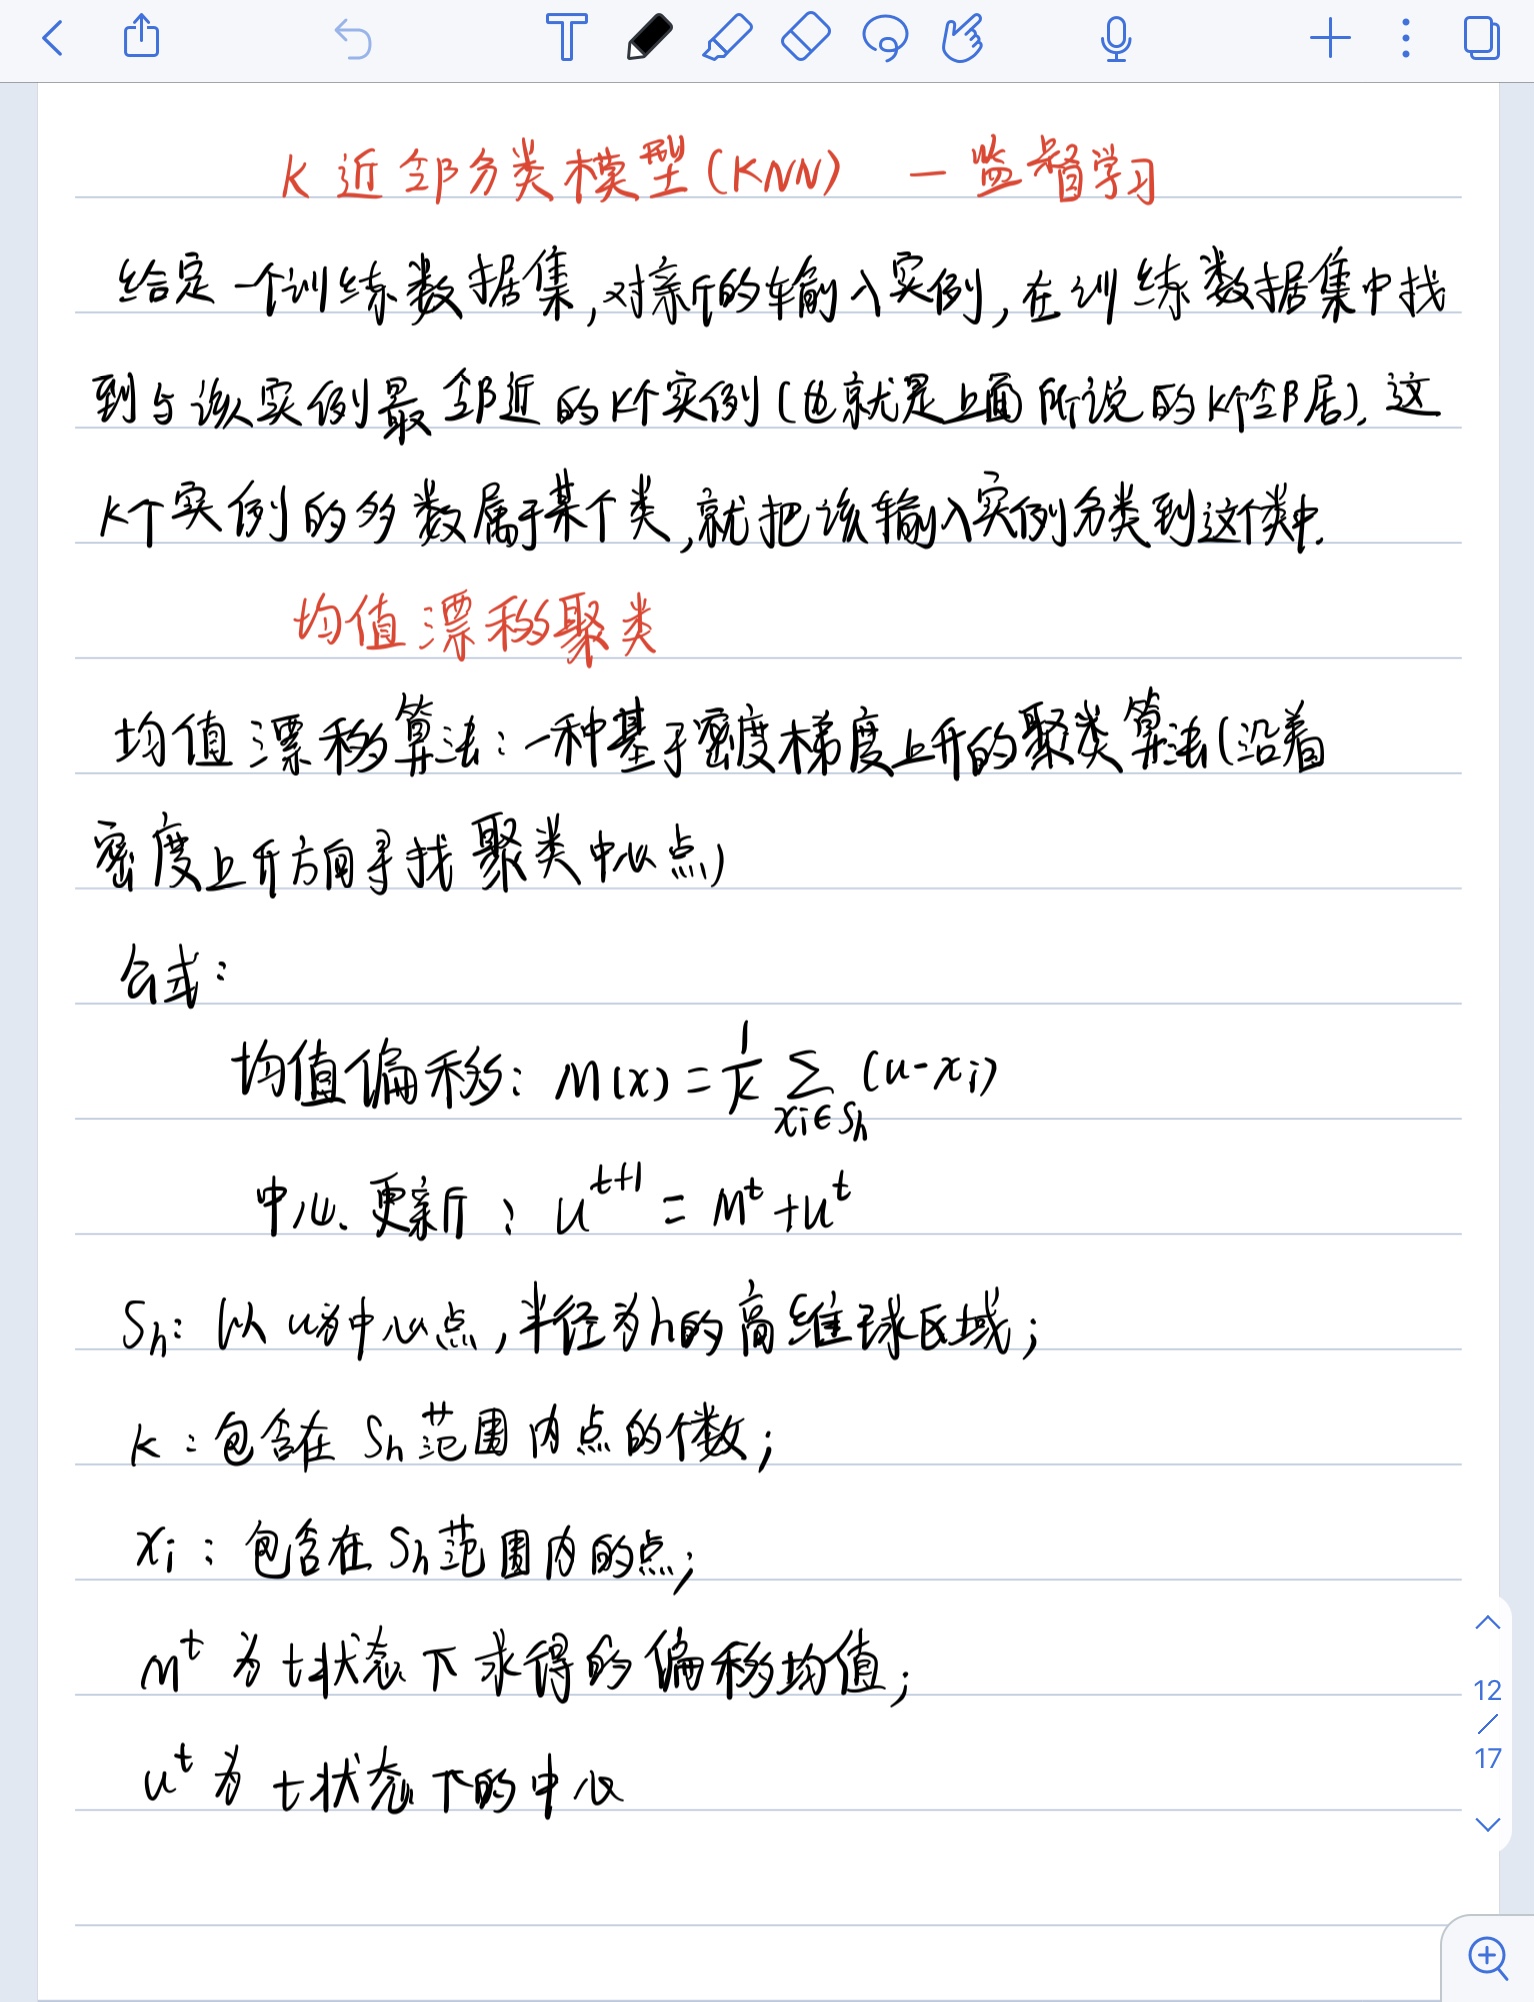 K近邻分类模型(KNN) — 监督学习
给定一个训练数据集,对新的输入实例,在训练数据集中找
到与该实例最邻近的K个实例(也就是上面所说的K个邻居),这
K个实例的多数属于某个类,就把该输入实例分类到这个类中.
均值漂移聚类
均值漂移算法:一种基于密度梯度上升的聚类算法(沿着
密度上升方向寻找聚类中心点)
公式:
均值偏移: M(x) = 1/K ∑_{xi∈Sh} (u-xi)
中心更新: u^{t+1} = M^t + u^t
Sh: 以u为中心点,半径为h的高维球区域;
k:包含在Sh范围内点的个数;
xi:包含在Sh范围内的点;
M^t 为t状态下求得的偏移均值;
u^t 为t状态下的中心
12
/
17